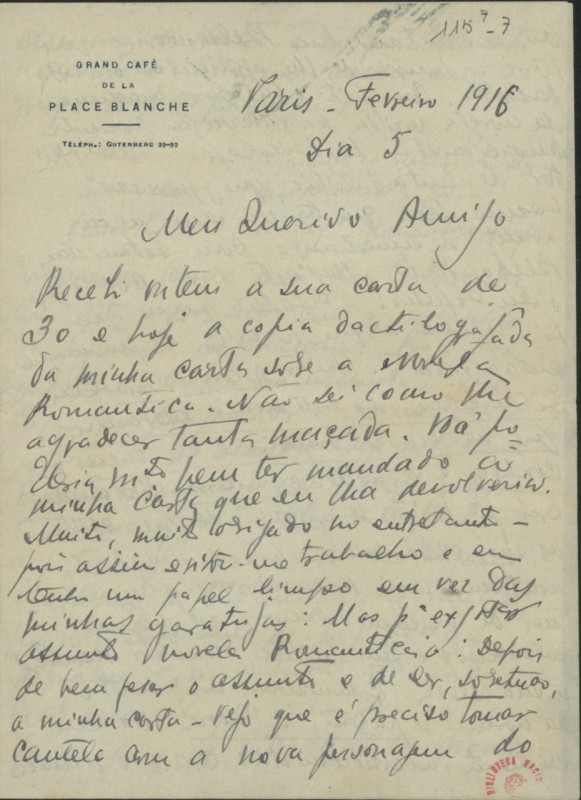 115⁷-7
GRAND CAFÉ
DE LA
PLACE BLANCHE
TÉLÉPH.: GUTENBERG 39-92
Paris - Fevereiro 1916
Dia 5
Meu Querido Amigo
Recebi ontem a sua carta de
30 e hoje a copia dactilografada
da minha carta sobre a Novela
Romantica. Não sei como lhe
agradecer tanta maçada. Você po-
deria mto bem ter mandado a
minha carta que eu lha devolveria.
Muito, muito obrigado no entretanto -
pois assim evitou-me trabalho e eu
tenho um papel limpo em vez das
minhas garatujas: Mas pª
assunto novela Romantica: Depois
de bem pesar o assunto e de ler, sobretudo,
a minha carta - vejo que é preciso tomar
cautela com a nova personagem do
BIBLIOTECA